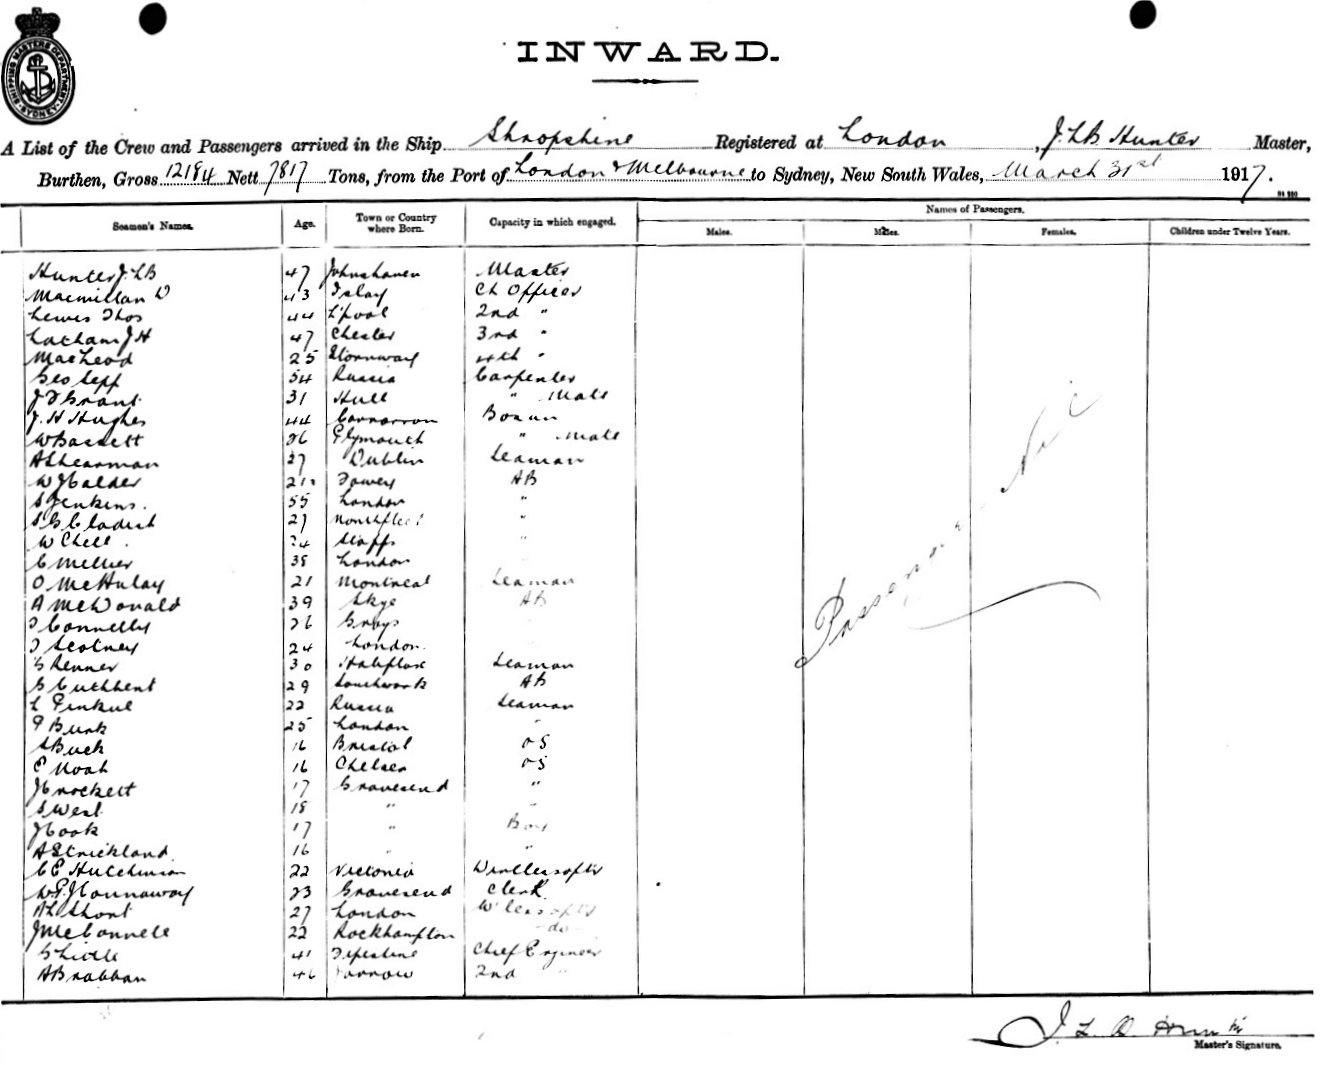 SHIPPING MASTERS DEPARTMENT SYDNEY
INWARD.
A List of the Crew and Passengers arrived in the Ship Shropshire Registered at London, J.L.B Hunter Master,
Burthen, Gross 12184 Nett 7817 Tons, from the Port of London & Melbourne to Sydney, New South Wales, March 31st 1917.
Names of Passengers.
Seamen's Names. Age. Town or Country where Born. Capacity in which engaged. Males. Males. Females. Children under Twelve Years.
Hunter J. L B 47 Johnshaven Master
Macmillan D 43 Islay Ch Officer
Lewis Thos 44 L'pool 2nd "
Latham J H 47 Chester 3rd "
MacLeod 25 Stornway 4th "
Geo Sepp 54 Russia Carpenter
J T Grant 31 Hull " Mate
J. H Hughes 44 Carnarvon Bosun
W Bassett 26 Plymouth " Mate
A Shearman 27 Dublin Seaman
W J Calder Fowey AB
S Jenkins. 55 London "
S G Cladish 27 Northfleet "
W Chell. 24 Staffs "
C Mellier 38 London
O McHulay 21 Montreal Seaman
A McDonald 39 Skye AB
J Connelly 26 Grays
J Scotney 24 London.
G Renner 30 Halifax Seaman
G Cuthbert 29 Southwark AB
L Pinkul 22 Russia Seaman
P Burk 25 London "
S Buck 16 Bristol OS
E Noah 16 Chelsea OS
J Crockett 17 Gravesend "
S West 18 " "
J Cook 17 " Boy
A Strickland 16 " "
C E Hutchinson 22 Victoria Wirelessoptr
W. P. J Counaway 23 Gravesend Clerk
A L Short 27 London W'lessoptr
J McConnell 22 Rockhampton -do-
G Little 41 Chief Engineer
A Brabban 46 Jarrow 2nd "
Passengers Nil
J. L B Hunter
Master's Signature.